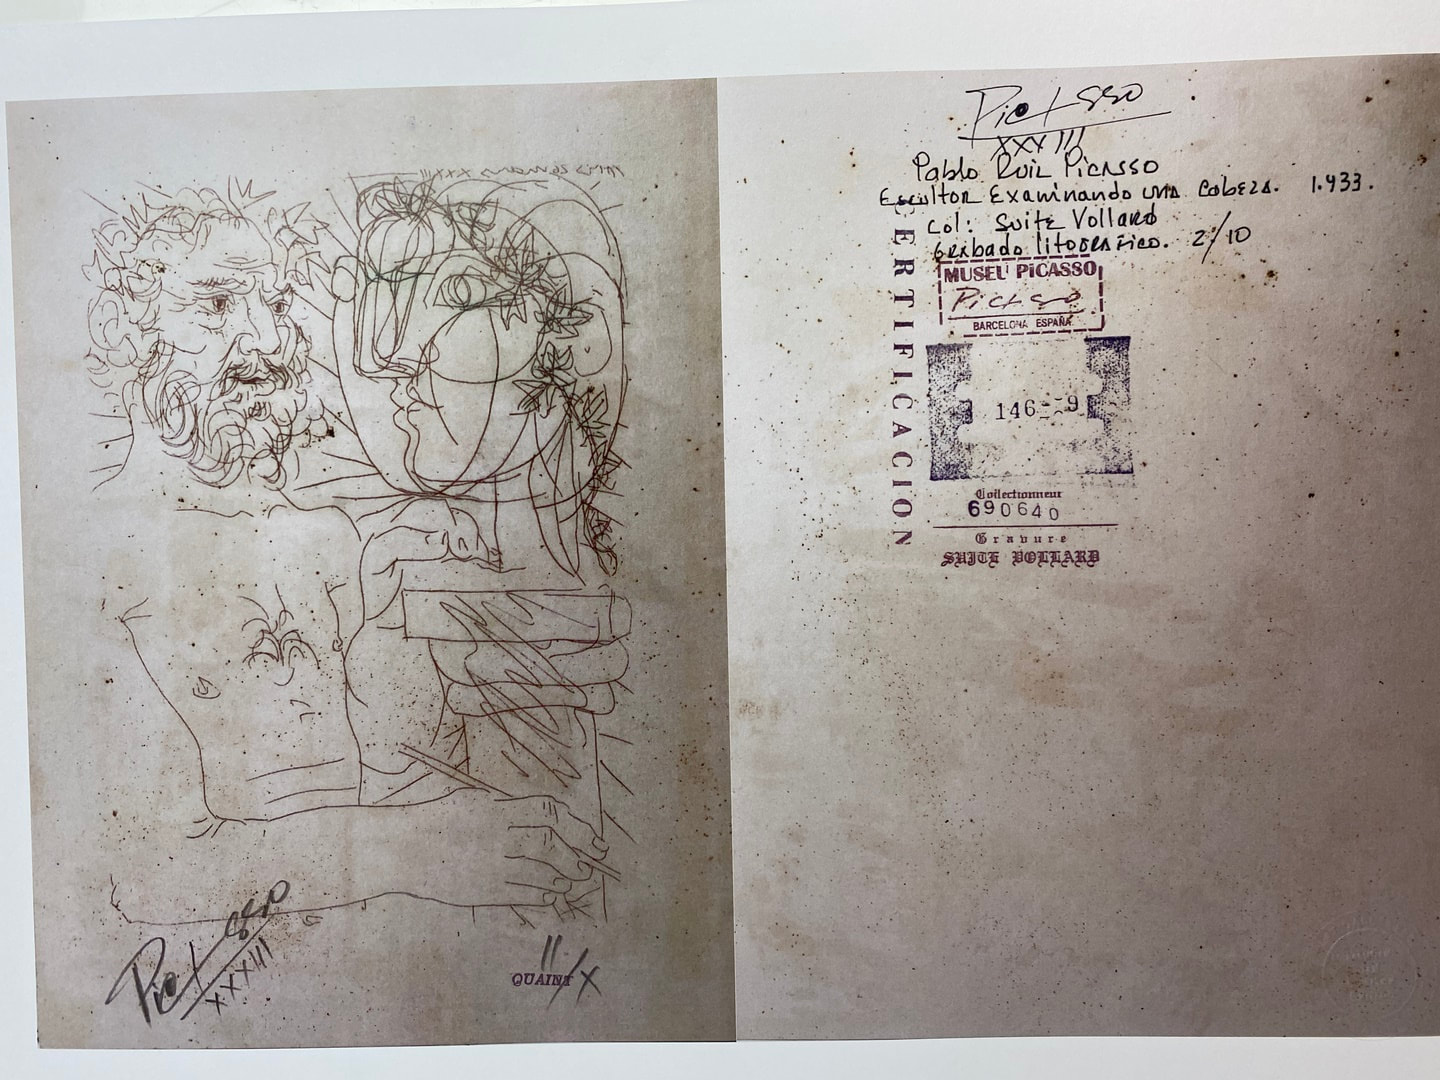 Picasso
XXXIII
QUAINT
II/X
Picasso
XXXIII
Pablo Ruiz Picasso
Escultor Examinando una Cabeza. 1.933.
Col: Suite Vollard
Grabado litografico. 2/10
CERTIFICACION
MUSEU PiCASSO
Picasso
BARCELONA ESPAÑA
146--9
Collectionneur
690640
Gravure
SUITE VOLLARD